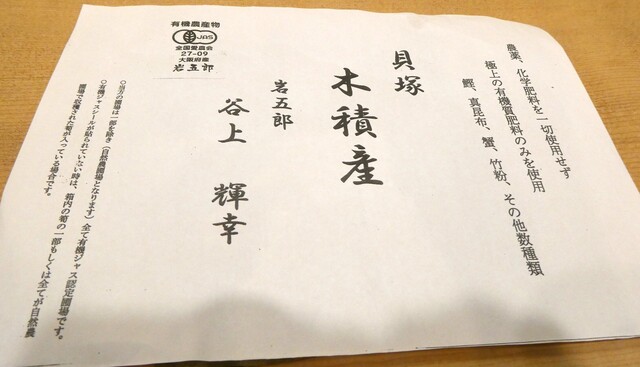 農薬、化学肥料を一切使用せず
極上の有機質肥料のみを使用
鰹、真昆布、蟹、竹粉、その他数種類
貝塚
木積産
岩五郎
谷上 輝幸
有機農産物
JAS
全国愛農会
27-09
大阪府産
岩五郎
○当方の圃場は一部を除き(自然農圃場となります)全て有機ジャス認定圃場です。
○有機ジャスシールが貼られていない時は、箱内の筍の一部もしくは全てが自然農
圃場で収穫された筍が入っている場合です。